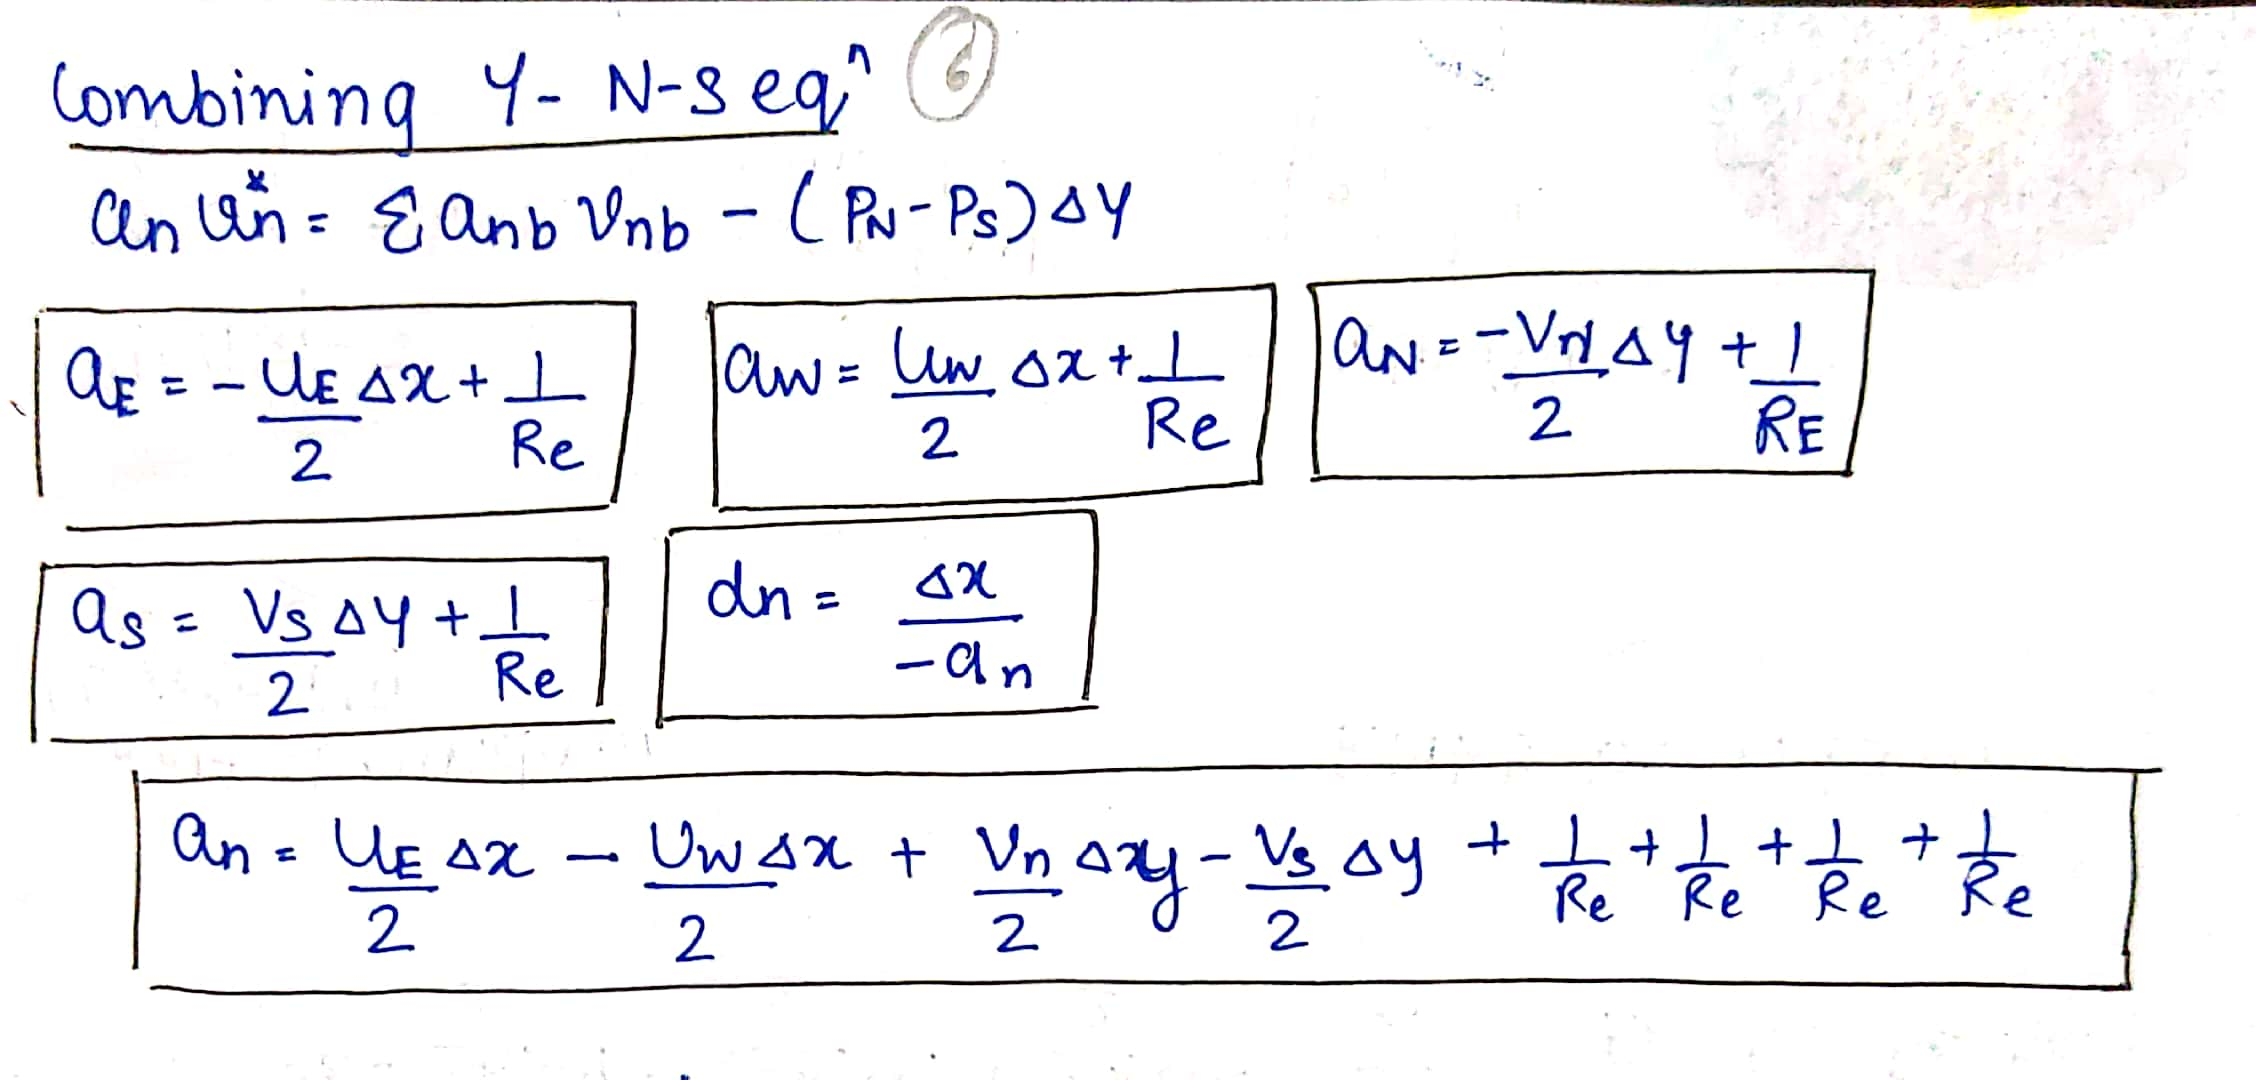 Combining Y- N-S eqⁿ 6
an vn* = Σ anb Vnb - (PN - PS) ΔY
aE = - UE/2 Δx + 1/Re
aW = UW/2 Δx + 1/Re
aN = - Vn/2 Δy + 1/RE
aS = VS/2 ΔY + 1/Re
dn = Δx/-an
an = UE/2 Δx - UW/2 Δx + Vn/2 Δy - VS/2 Δy + 1/Re + 1/Re + 1/Re + 1/Re